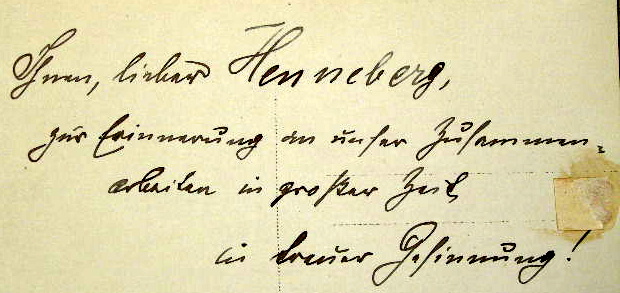 Ihnen, lieber Henneberg,
zur Erinnerung an unser Zusammen-
arbeiten in großer Zeit
in treuer Gesinnung!